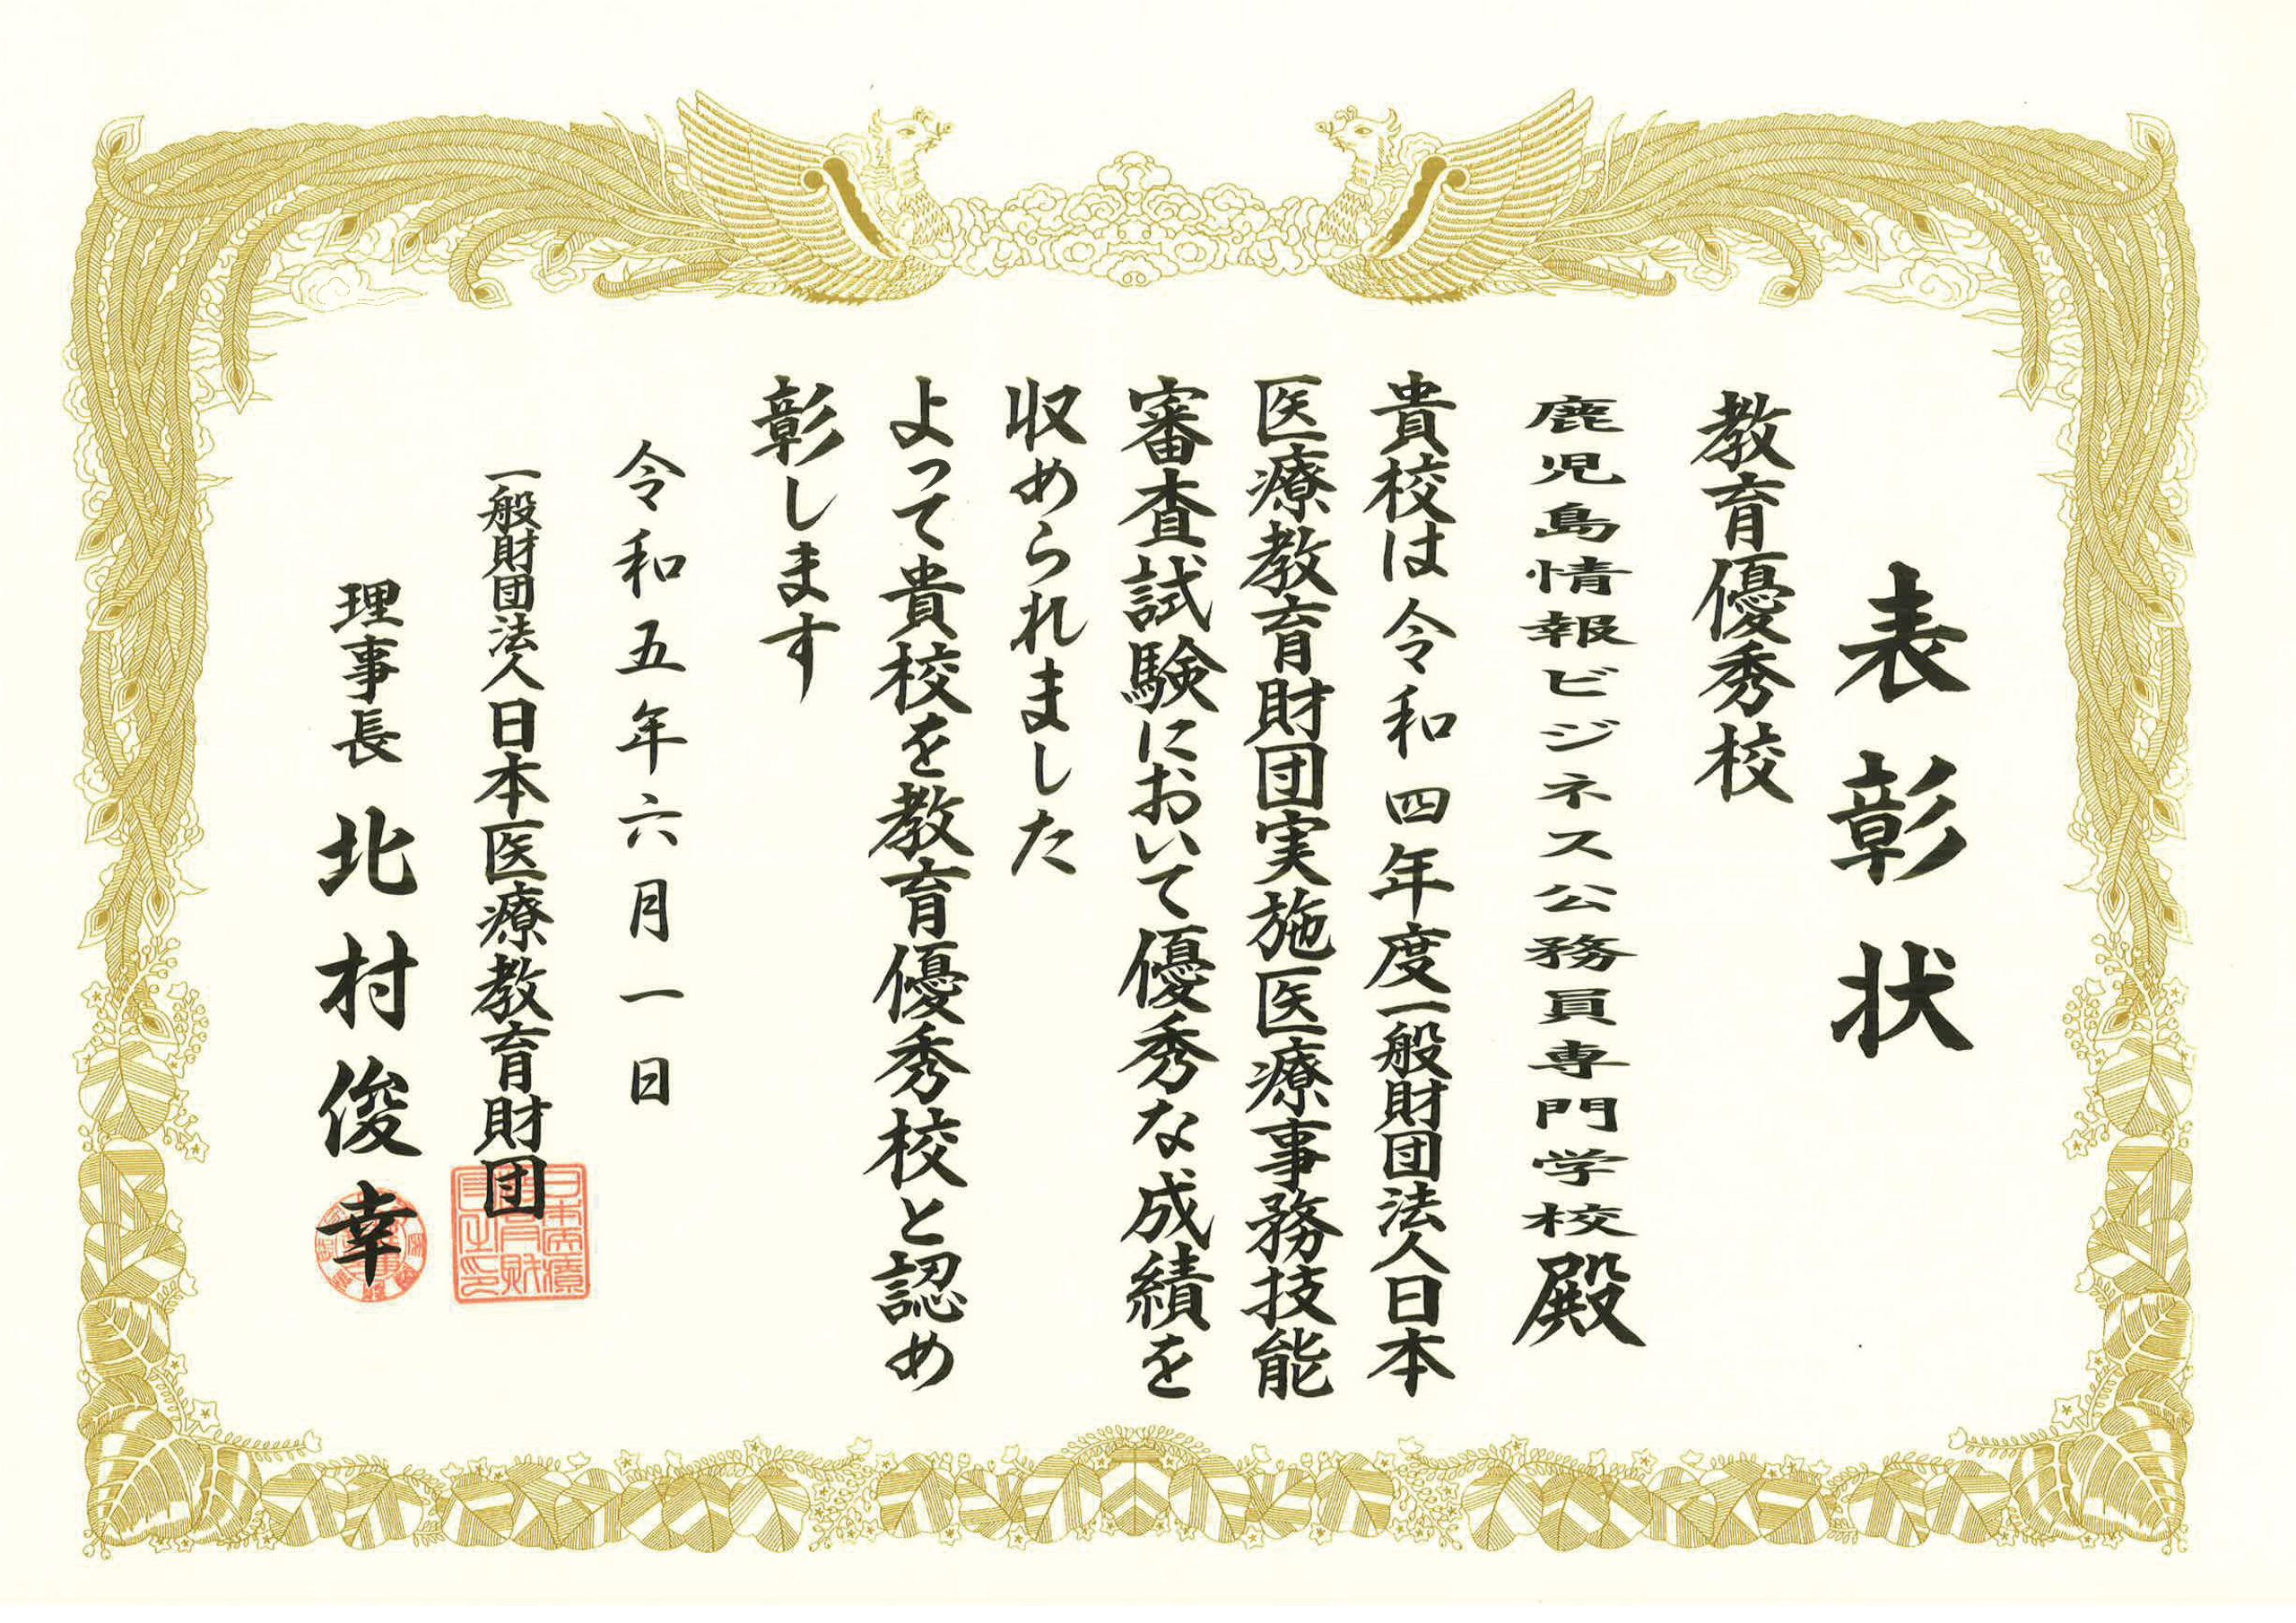 表彰状
教育優秀校
鹿児島情報ビジネス公務員専門学校殿
貴校は令和四年度一般財団法人日本
医療教育財団実施医療事務技能
審査試験において優秀な成績を
収められました
よって貴校を教育優秀校と認め
彰します
令和五年六月一日
一般財団法人日本医療教育財団
理事長 北村俊幸